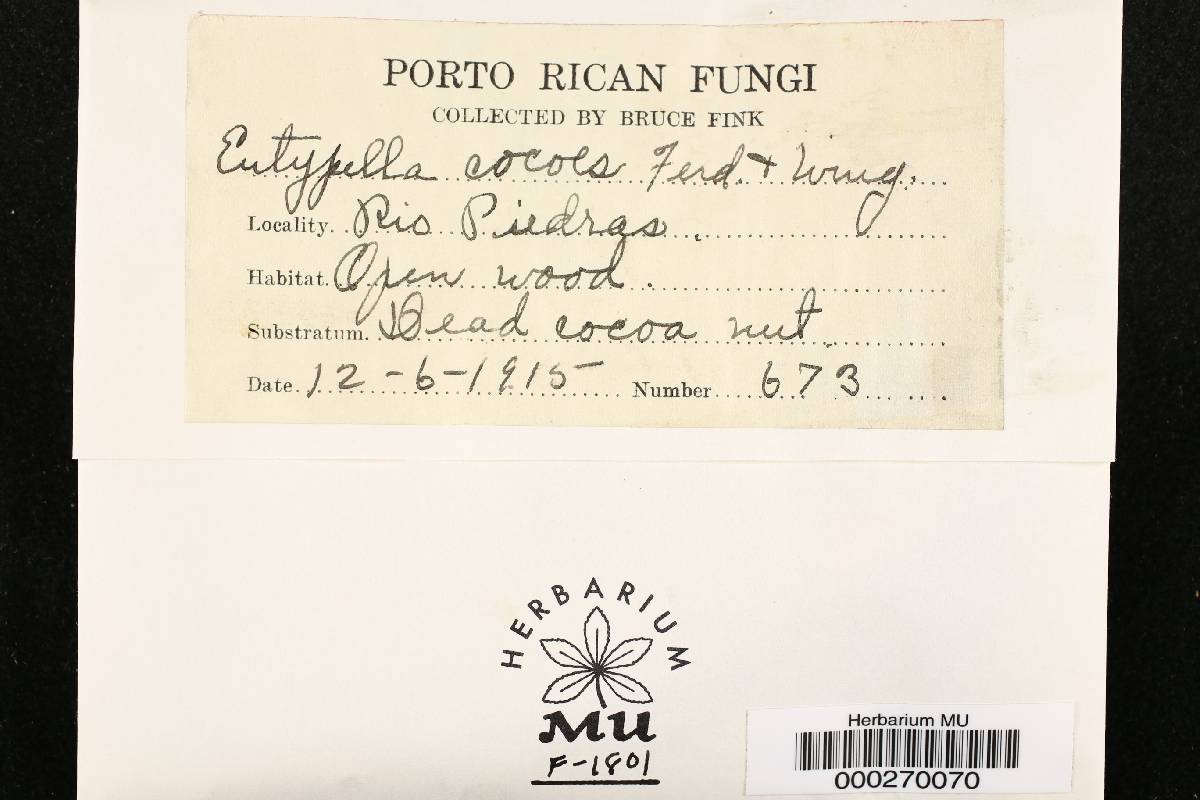 PORTO RICAN FUNGI
COLLECTED BY BRUCE FINK
Eutypella cocoes Ferd. + Wing.
Locality. Rio Piedras.
Habitat. Open wood.
Substratum. Dead cocoa nut.
Date. 12-6-1915 Number 673
HERBARIUM
MU
F-1801
Herbarium MU
000270070